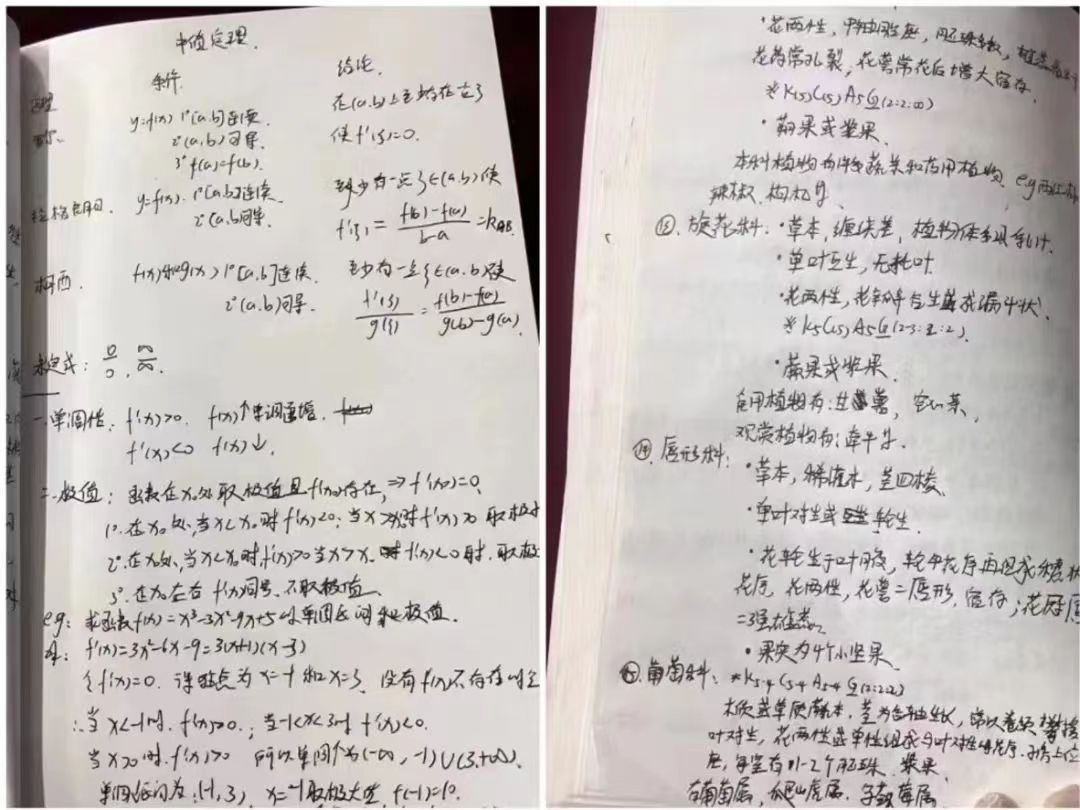 中值定理.
条件. 结论.
y=f(x) 1°[a,b]连续. 在(a,b)上至少存在
2°(a,b)可导. 使f'(ξ)=0.
3° f(a)=f(b).
y=f(x). 1°[a,b]连续. 至少有一点ξ∈(a,b)使
2°(a,b)可导. f'(ξ)=\frac{f(b)-f(a)}{b-a}=k_{AB}.
柯西. f(x)和g(x) 1°[a,b]连续. 至少有一点ξ∈(a,b)使
2°(a,b)可导. \frac{f'(ξ)}{g'(ξ)}=\frac{f(b)-f(a)}{g(b)-g(a)}
未定式: \frac{0}{0}, \frac{∞}{∞}.
一.单调性. f'(x)>0. f(x)↑单调递增.
f'(x)<0 f(x)↓.
二.极值: 函数在x₀处取极值且f'(x₀)存在,⇒f'(x₀)=0.
1°.在x₀处,当x<x₀时f'(x)<0;当x>x₀时f'(x)>0 取极小
2°.在x₀处,当x<x₀时,f'(x)>0当x>x₀时f'(x)<0时.取极
3°.在x₀左右 f'(x)同号.不取极值.
eg: 求函数f(x)=x³-3x²-9x+5的单调区间和极值.
f'(x)=3x²-6x-9=3(x+1)(x-3)
令f'(x)=0. 得驻点为x=-1和x=3. 没有f'(x)不存在的
∴当x<-1时.f'(x)>0. 当-1<x<3时 f'(x)<0.
当x>3时.f'(x)>0 所以单调个为(-∞,-1)∪(3,+∞).
单调区间为(-1,3). x=-1取极大值,f(-1)=10.
·花两性,中轴胎座,胚珠多数,
花药常孔裂,花萼常花后增大宿存.
*K(5)C(5)A5G(2:2:∞)
·蒴果或浆果.
本科植物有许多蔬菜和药用植物. eg西红柿
辣椒,枸杞等.
旋花科:·草本,缠绕茎,植物体多具乳汁.
·单叶互生,无托叶.
·花两性,花漏斗状.
*K5C(5)A5G(2-3:2:2).
·蒴果或浆果.
食用植物有:甘薯,空心菜.
观赏植物有:牵牛等.
⑭.唇形科:·草本,稀灌木,茎四棱.
·单叶对生或轮生
·花轮生于叶腋,轮伞花序再组成穗状
花序,花两性,花萼二唇形,宿存;花冠唇
二强雄蕊.
·果实为4个小坚果.
⑮.葡萄科:*K5-4 C5-4 A5-4 G(2:2:2)
木质或草质藤本,茎为合轴生长,常以卷须攀援
叶对生,花两性或单性组成与叶对生的花序.子房上位
座,每室有1-2个胚珠.浆果.
有葡萄属,爬山虎属.